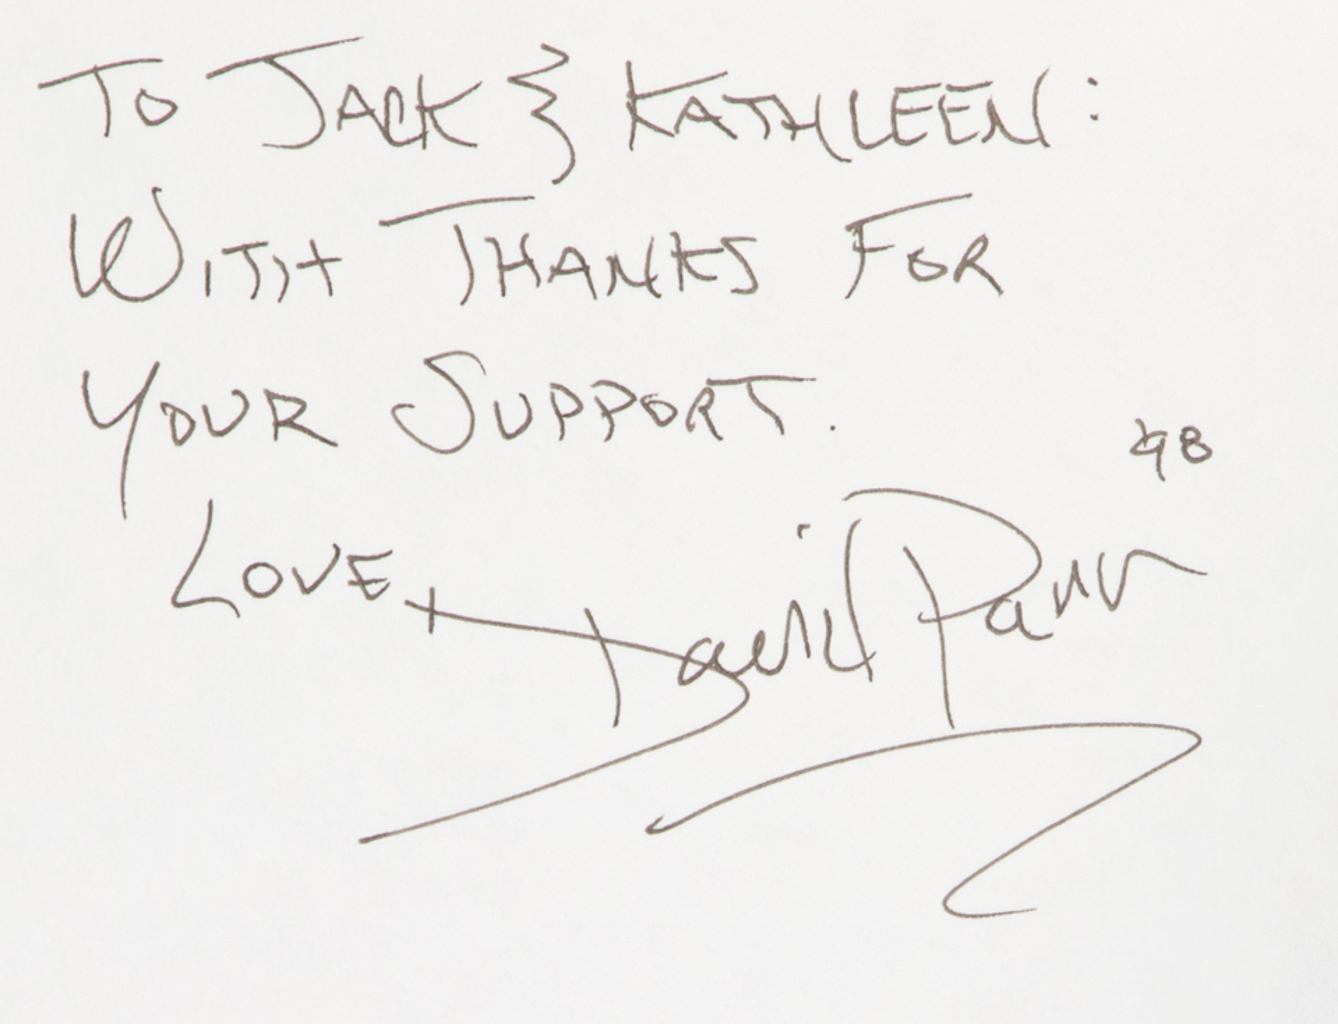 To Jack & Kathleen:
With Thanks For
Your Support.
98
Love,
David Parr